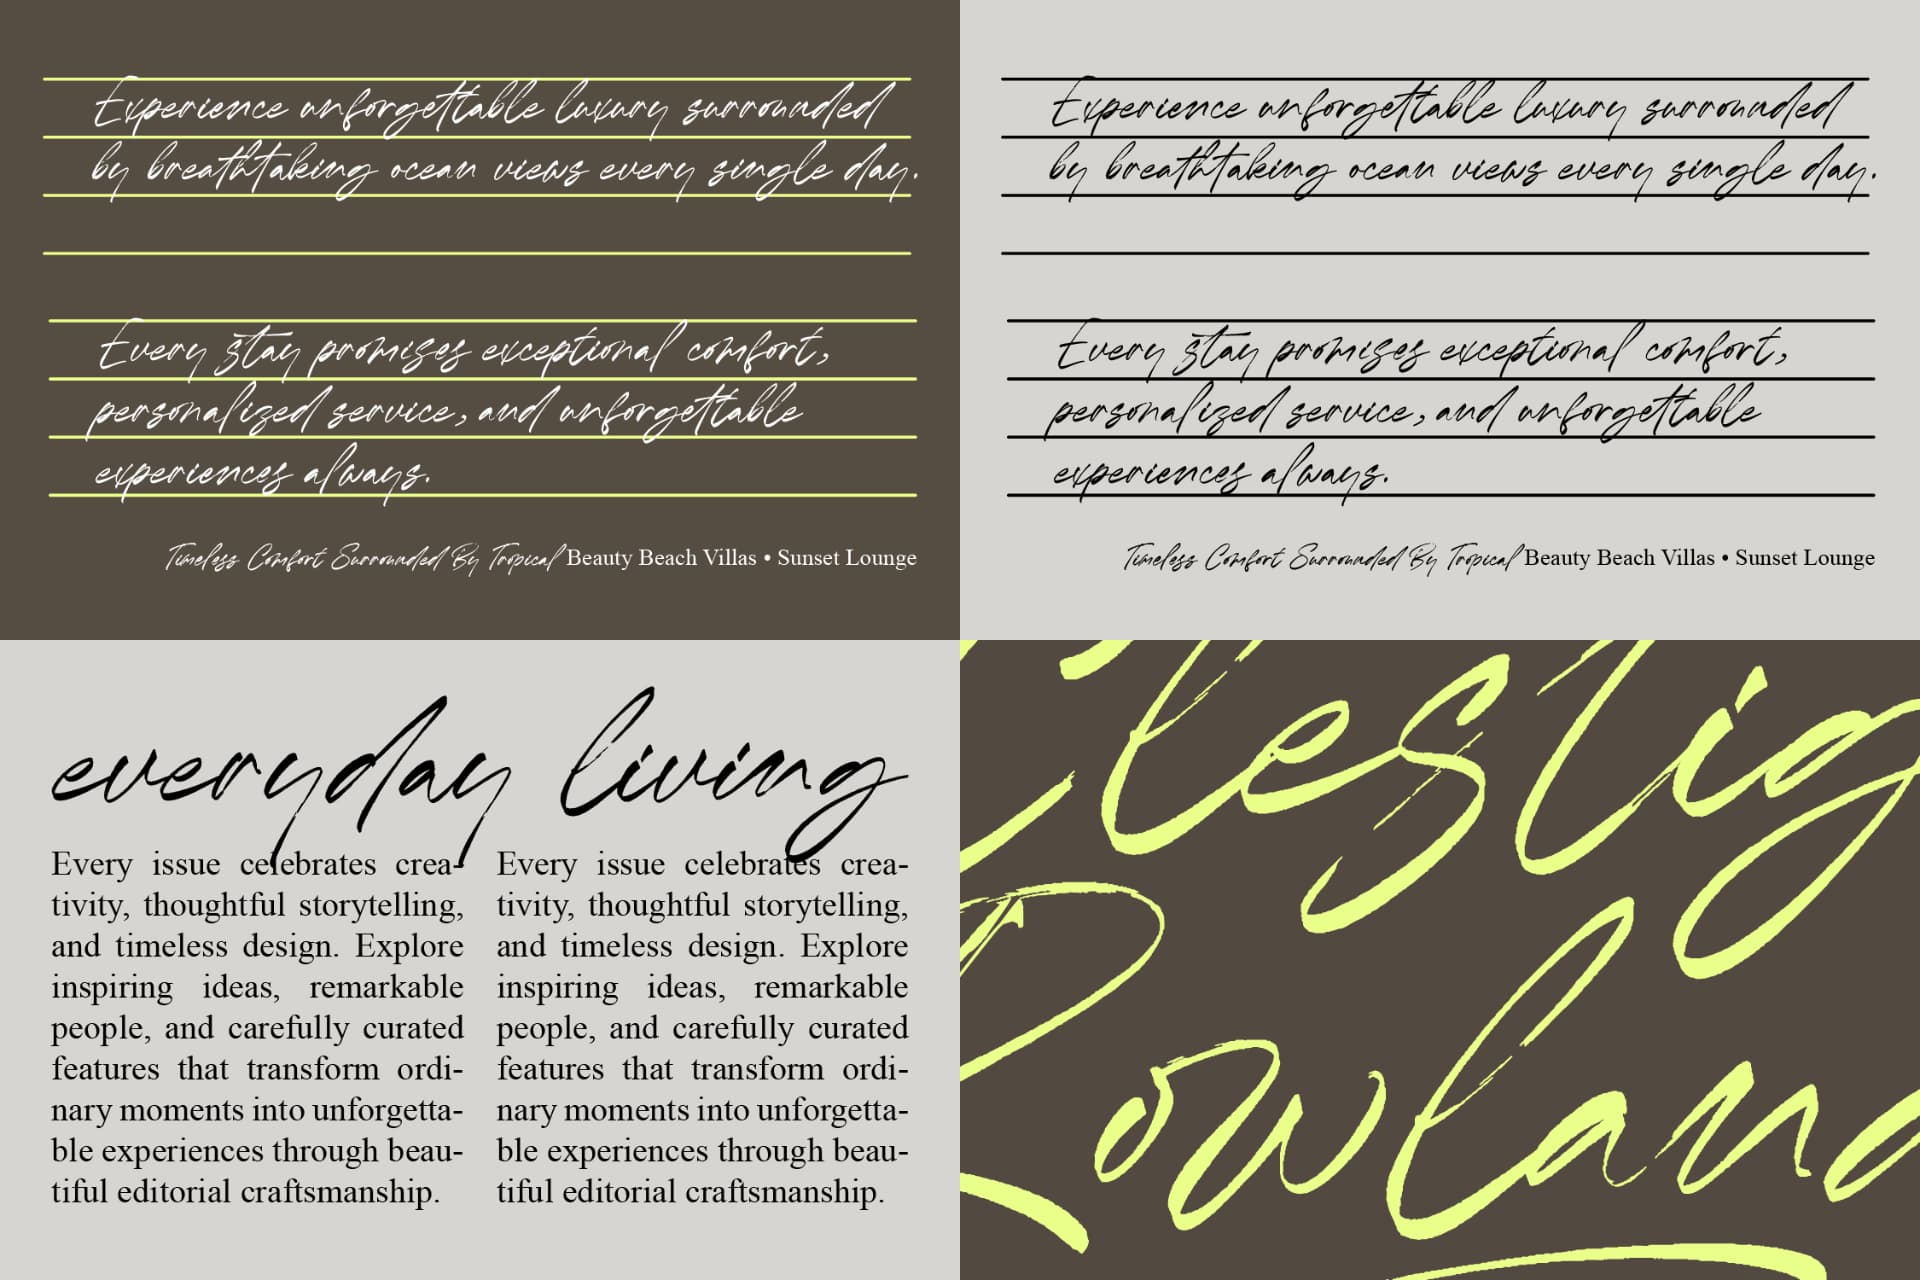 Experience unforgettable luxury surrounded
by breathtaking ocean views every single day.
Every stay promises exceptional comfort,
personalized service, and unforgettable
experiences always.
Timeless Comfort Surrounded By Tropical Beauty Beach Villas • Sunset Lounge
Experience unforgettable luxury surrounded
by breathtaking ocean views every single day.
Every stay promises exceptional comfort,
personalized service, and unforgettable
experiences always.
Timeless Comfort Surrounded By Tropical Beauty Beach Villas • Sunset Lounge
everyday living
Every issue celebrates crea-
tivity, thoughtful storytelling,
and timeless design. Explore
inspiring ideas, remarkable
people, and carefully curated
features that transform ordi-
nary moments into unforgetta-
ble experiences through beau-
tiful editorial craftsmanship.
Every issue celebrates crea-
tivity, thoughtful storytelling,
and timeless design. Explore
inspiring ideas, remarkable
people, and carefully curated
features that transform ordi-
nary moments into unforgetta-
ble experiences through beau-
tiful editorial craftsmanship.
Rowland